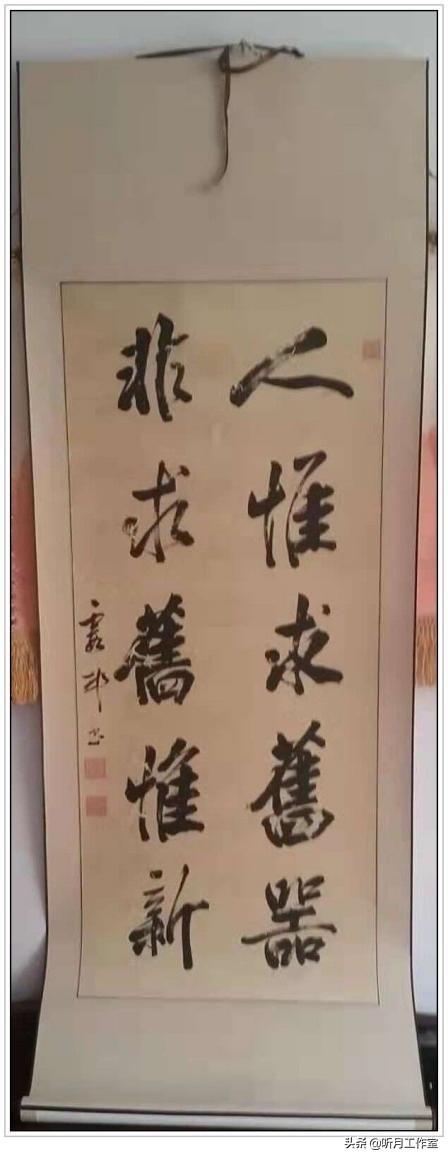 人惟求舊器
非求舊惟新
頭条 @听月工作室